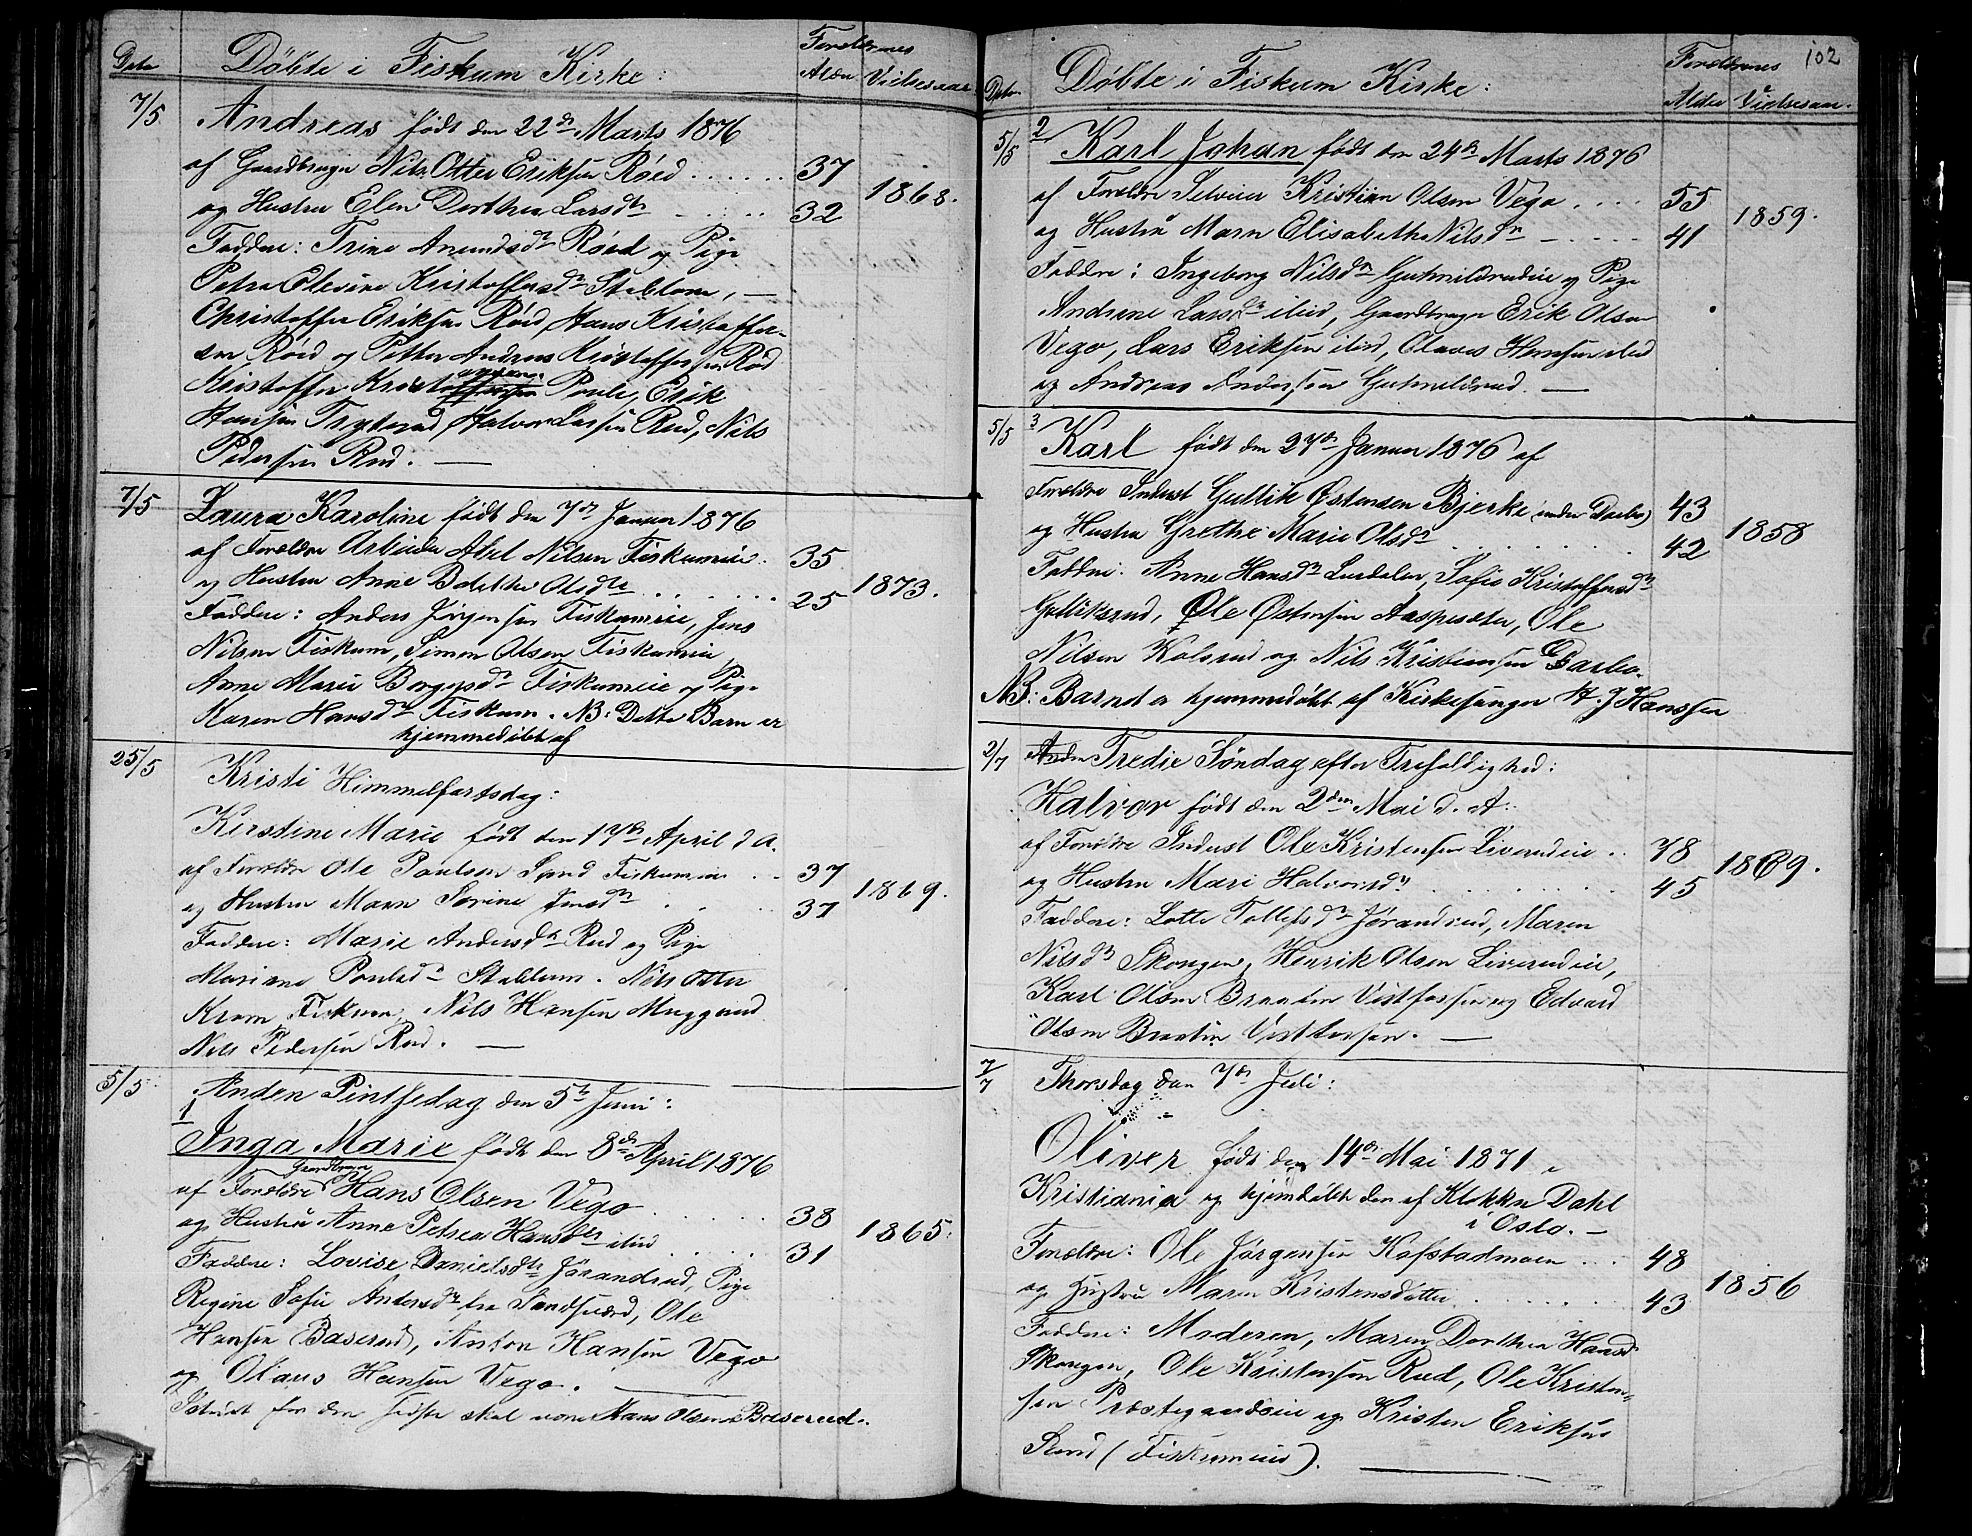 Dato Döbte i Fiskum Kirke: Forældrenes
Alder Vielsesaar
7/5 Andreas født den 22de Marts 1876
af Gaardbruger Nils Otter Eriksen Röed . . . . . . 37
og Hustru Elen Dorthea Larsdtr . . . . 32 1868.
Faddere: Trine Amundsdtr Röed og Pige
Petra Olevine Kristoffersdtr Stablum, —
Christoffer Eriksen Röed, Hans Kristoffer-
sen Röed og Petter Andreas Kristoffersen Röd
Kristoffer Kristoffersen Poule, Erik
Hansen Tryterud, Halvor Larssen Rud, Nils
Pedersen Rud. —
7/5 Laura Karoline født den 7de Januar 1876
af Forældre Arbeider Abel Nilsen Fiskumeie . 35
og Hustru Anne Bolette Olsdtr . . . . . . 25 1873.
Faddere: Anders Jörgensen Fiskumeie, Jens
Nilsen Fiskum, Simen Olsen Fiskumeie,
Anne Marie Borgersdtr Fiskumeie og Pige
Karen Hansdtr Fiskum. NB: Dette Barn er
hjemmedöbt af
25/5 Kristi Himmelfartsdag:
Kirstine Marie født den 17de April d. A.
af Forældre Ole Paulsen Sand Fiskumeie . . 37
og Hustru Maren Sörine Jensdtr . . . 37 1869.
Faddere: Marie Andersdtr Rud og Pige
Mariane Paulsdtr Stablum. Nils Otter
Krom Fiskum, Nils Hansen Muggerud
Nils Pedersen Rud. —
5/5 Anden Pintsedag den 5te Juni:
1
Inga Marie født den 8de April 1876
Gaardbruger
af Forældre Hans Olsen Vego . . . . . . 38
og Hustru Anne Petrea Hansdtr itid . . . . 31 1865.
Faddere: Lovise Danielsdtr Jörandrud, Pige
Regine Sofie Andersdtr fra Sandsværd, Ole
Hansen Baserud, Anton Hansen Vego
og Olaus Hansen Vego. —
Istedet for den sidste skal være Hans Olsen Baserud.
102
Dato Döbte i Fiskum Kirke: Forældrenes
Alder Vielsesaar.
5/5 2 Karl Johan født den 24de Marts 1876
af Forældre Selveier Kristian Olsen Vego . . . . 55
og Hustru Maren Elisabeth Nilsdtr — . . . . 41 1859.
Faddere: Ingeborg Nilsdtr Gutmildrudeie og Pige
Andrine Larsdtr itid, Gaardbruger Erik Olsen
Vego, Lars Eriksen itid, Olaves Hansen itid
og Andreas Anderssen Gutmildrud. —
5/5 3 Karl født den 27de Januar 1876 af
Forældre Inderst Gullik Østensen Bjerke (under Darbo) 43
og Hustru Grethe Marie Olsdtr . . . . . . . 42 1858
Faddere: Anne Hansdtr Lurdalen, Sofie Kristoffersdtr
Gulliksrud, Ole Østensen Aaspesæter, Ole
Nilsen Kolsrud og Nils Kristiansen Darbo.
NB: Barnet er hjemmedöbt af Kirkesanger H. J. Hanssen
2/7 Anden Tredie Söndag efter Trefoldighed:
Halvor født den 2den Mai d. A:
af Forældre Inderst Ole Kristensen Liverudeie . . 78
og Hustru Mari Halvorsdtr . . . . . . . . 45 1869.
Faddere: Lotte Tollefsdtr Jörandrud, Maren
Nilsdtr Skougen, Henrik Olsen Liverudeie,
Karl Olsen Braaten Vestfossen og Edvard
Olsen Braaten Vestfossen. —
7/7 Thorsdag den 7de Juli:
Oliver født den 14de Mai 1871 i
Kristiania og hjemdöbt den af Klokker Dahl
i Oslo. —
Forældre: Ole Jörgensen Kofstadmoen . . . 48
og Hustru Maren Kristensdatter . . . . . . . 43 1856
Faddere: Moderen, Maren Dorthea Hansd
Skougen, Ole Kristensen Rud, Ole Kristen-
sen Præstegaardseie og Kristen Eriksen
Sand (Fiskumeie). —